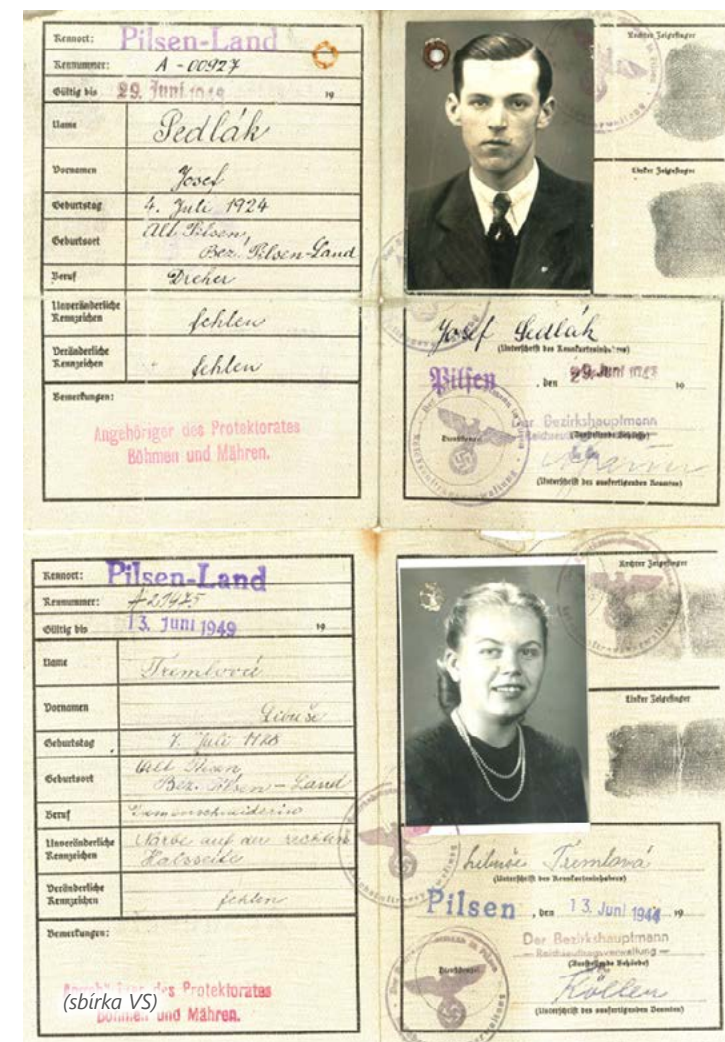 Kennort: Pilsen-Land
Kennummer: A - 00927
Gültig bis 29. Juni 1948 19
Name Sedlák
Vornamen Josef
Geburtstag 4. Juli 1924
Geburtsort Alt Pilsen,
Bez. Pilsen-Land
Beruf Dreher
Unveränderliche
Kennzeichen fehlen
Veränderliche
Kennzeichen fehlen
Bemerkungen:
Angehöriger des Protektorates
Böhmen und Mähren.
Rechter Zeigefinger
Linker Zeigefinger
Josef Sedlák
(Unterschrift des Kennkarteninhabers)
Pilsen, den 29. Juni 1943 19
Der Bezirkshauptmann
(Ausstellende Behörde)
Dienstsiegel
(Unterschrift des ausfertigenden Beamten)
Kennort: Pilsen-Land
Kennummer: A 29475
Gültig bis 13. Juni 1949 19
Name Třemlová
Vornamen Libuše
Geburtstag 7. Juli
Geburtsort Alt Pilsen
Bez. Pilsen - Land
Beruf Damenschneiderin
Unveränderliche
Kennzeichen Narbe auf der rechten
Halsseite
Veränderliche
Kennzeichen fehlen
Bemerkungen:
Angehöriger des Protektorates
Böhmen und Mähren.
(sbírka VS)
Rechter Zeigefinger
Linker Zeigefinger
Libuše Třemlová
(Unterschrift des Kennkarteninhabers)
Pilsen, den 13. Juni 1944 19
Der Bezirkshauptmann
— Reichsauftragsverwaltung —
(Ausstellende Behörde)
Dienstsiegel
Köllen
(Unterschrift des ausfertigenden Beamten)